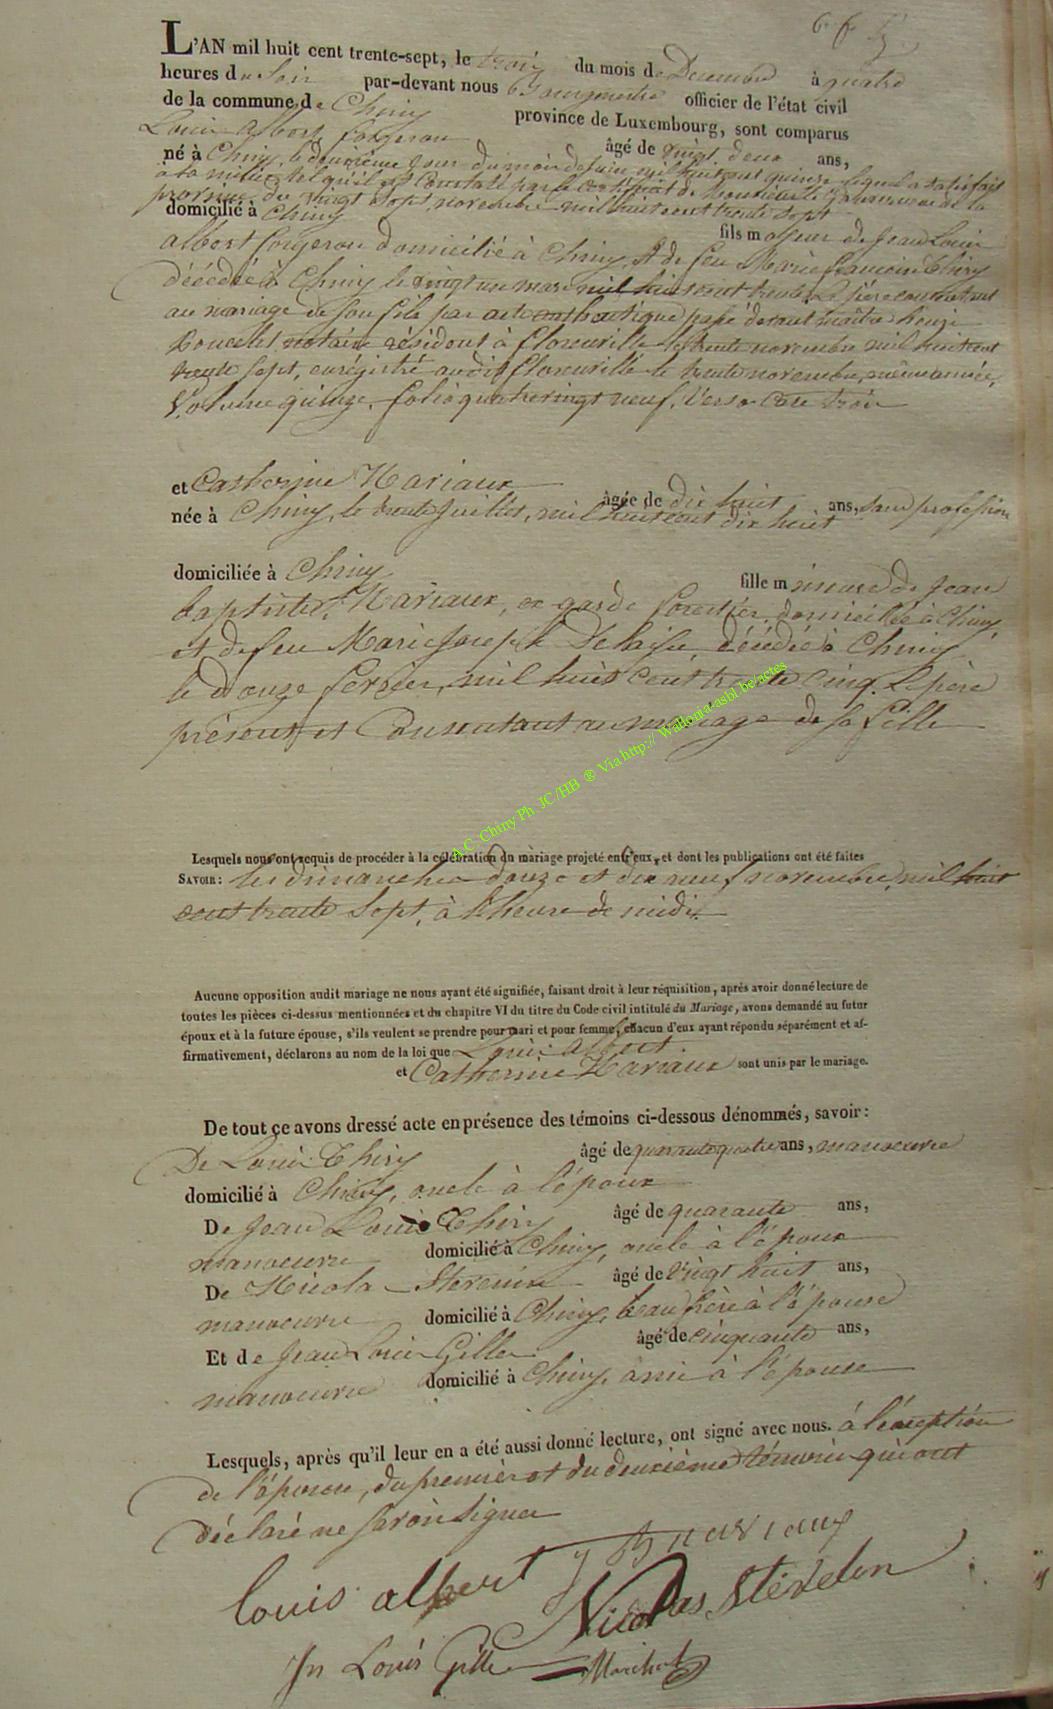 L'AN mil huit cent trente-sept, le trois du mois de Decembre à quatre
heures du Soir par-devant nous Bourgmestre officier de l'état civil
de la commune de Chiny province de Luxembourg, sont comparus
Louis albert forgeron âgé de vingt deux ans,
né à Chiny, le deuxième jour du mois de juin mil huit cent quinze lequel a satisfait
à la milice tel qu'il est constaté par le certificat de Monsieur le Gouverneur de la
province du vingt Sept novembre mil huit cent trente sept
domicilié à Chiny fils majeur de Jean Louis
albert forgeron domicilié à Chiny, et de feu Marie françoise Thiry
décédée à Chiny le vingt un mars mil huit cent trente. Le père consentant
au mariage de son fils par acte authentique passé devant maître henri
Poncelet notaire résident à florenville le trente novembre mil huit cent
trente sept, enrégistré audit florenville le trente novembre, même année,
Volume quinze, folio quatre vingt neuf, Verso case trois
et Catherine Hariaux âgée de dix huit ans, sans profession
née à Chiny, le trente juillet, mil huit cent dix huit
domiciliée à Chiny fille mineure de Jean
baptiste Hariaux, ex garde forestier, domiciliée à Chiny,
et de feu Marie Joseph décédée à Chiny
le douze fevrier, mil huit cent trente cinq. Le père
présent et Consentant au mariage de sa fille
A.C. Chiny Ph. JC/HB ® Via http:// Wallonia-asbl.be/actes
Lesquels nous ont requis de procéder à la célébration du mariage projeté entr'eux, et dont les publications ont été faites
SAVOIR: les dimanches douze et dix neuf novembre, mil huit
cent trente Sept, à l'heure de midi.
Aucune opposition audit mariage ne nous ayant été signifiée, faisant droit à leur réquisition, après avoir donné lecture de
toutes les pièces ci-dessus mentionnées et du chapitre VI du titre du Code civil intitulé du Mariage, avons demandé au futur
époux et à la future épouse, s'ils veulent se prendre pour mari et pour femme, chacun d'eux ayant répondu séparément et af-
firmativement, déclarons au nom de la loi que Louis albert
et Catherine Hariaux sont unis par le mariage.
De tout ce avons dressé acte en présence des témoins ci-dessous dénommés, savoir:
De Louis Thiry âgé de quarante quatre ans, manoeuvre
domicilié à Chiny, oncle à l'époux
De Jean Louis Thiry âgé de quarante ans,
manoeuvre domicilié à Chiny, oncle à l'époux
De Nicolas âgé de vingt huit ans,
manoeuvre domicilié à Chiny, beau frère à l'épouse
Et de Jean Louis Gille âgé de cinquante ans,
manoeuvre domicilié à Chiny, ami à l'épouse
Lesquels, après qu'il leur en a été aussi donné lecture, ont signé avec nous. à l'éxception
de l'épouse, du premier et du deuxième témoins qui ont
déclaré ne savoir Signer
louis albert
Nicolas Stévelin
Jn Louis Gille Maréchal